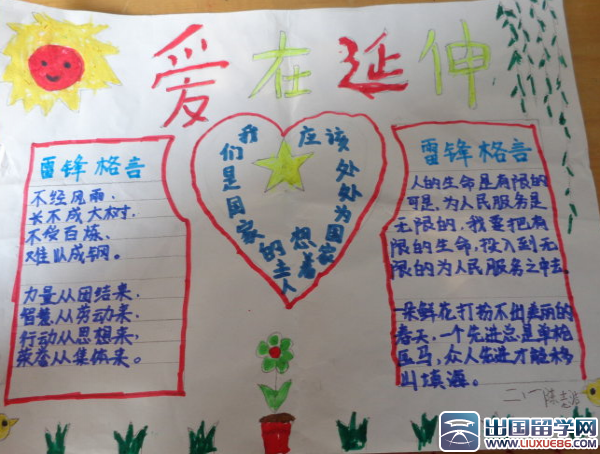 爱在延伸
雷锋格言
不经风雨,
长不成大树.
不受百炼,
难以成钢。
力量从团结来,
智慧从劳动来,
行动从思想来,
荣誉从集体来。
我们是国家的主人
应该处处为国家想着
雷锋格言
人的生命是有限的
可是,为人民服务是
无限的,我要把有
限的生命,投入到无
限的为人民服务之中去
一朵鲜花打扮不出美丽的
春天,一个先进总是单枪
匹马,众人先进才能移
山填海。
二.1
出国留学网
WWW.LIUXUE86.COM